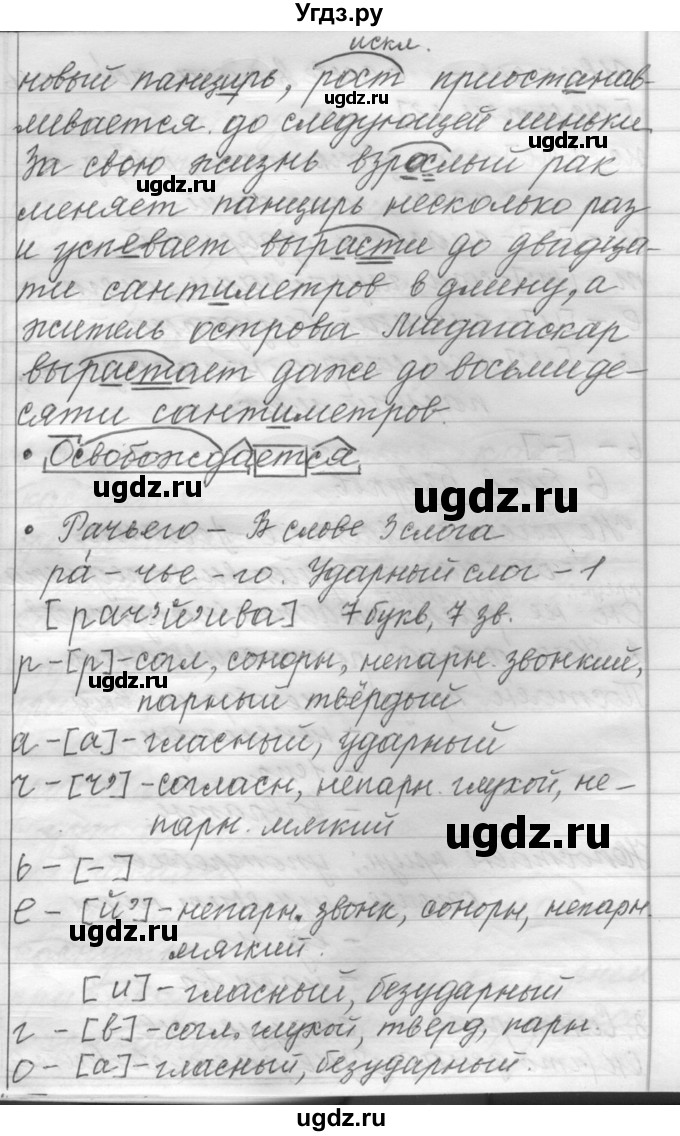 Угдз.ру
искл.
новый панцирь, рост приостанав-
ugdz.ru
ливается до следующей линьки.
ugdz.ru
За свою жизнь взрослый рак
ugdz.ru
меняет панцирь несколько раз
и успевает вырасти до двадца-
ти сантиметров в длину, а
житель острова Мадагаскар
вырастает даже до восьмиде-
сяти сантиметров.
• Освобождается
ugdz.ru
ugdz.ru
• Рачьего – В слове 3 слога
ра́ – чье – го. Ударный слог – 1
[рач'й'ива] 7 букв, 7 зв.
р – [р] – согл, сонорн, непарн. звонкий,
ugdz.ru
парный твёрдый
а – [а] – гласный, ударный
ч – [ч'] – согласн, непарн. глухой, не-
парн. мягкий
ugdz.ru
ь – [–]
е – [й'] – непарн. звонк, сонорн, непарн.
ugdz.ru
мягкий.
[и] – гласный, безударный
г – [в] – согл. глухой, тверд, парн.
о – [а] – гласный, безударный.
ugdz.ru